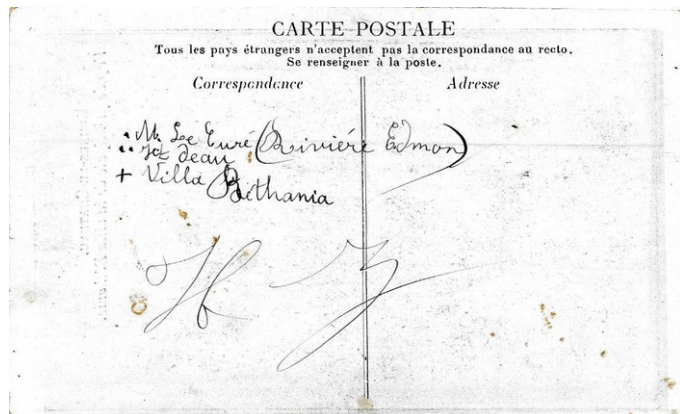 CARTE POSTALE
Tous les pays étrangers n'acceptent pas la correspondance au recto.
Se renseigner à la poste.
Correspondance
Adresse
. M. Le Curé (Rivière Edmon)
.. Jean
+ Villa Béthania